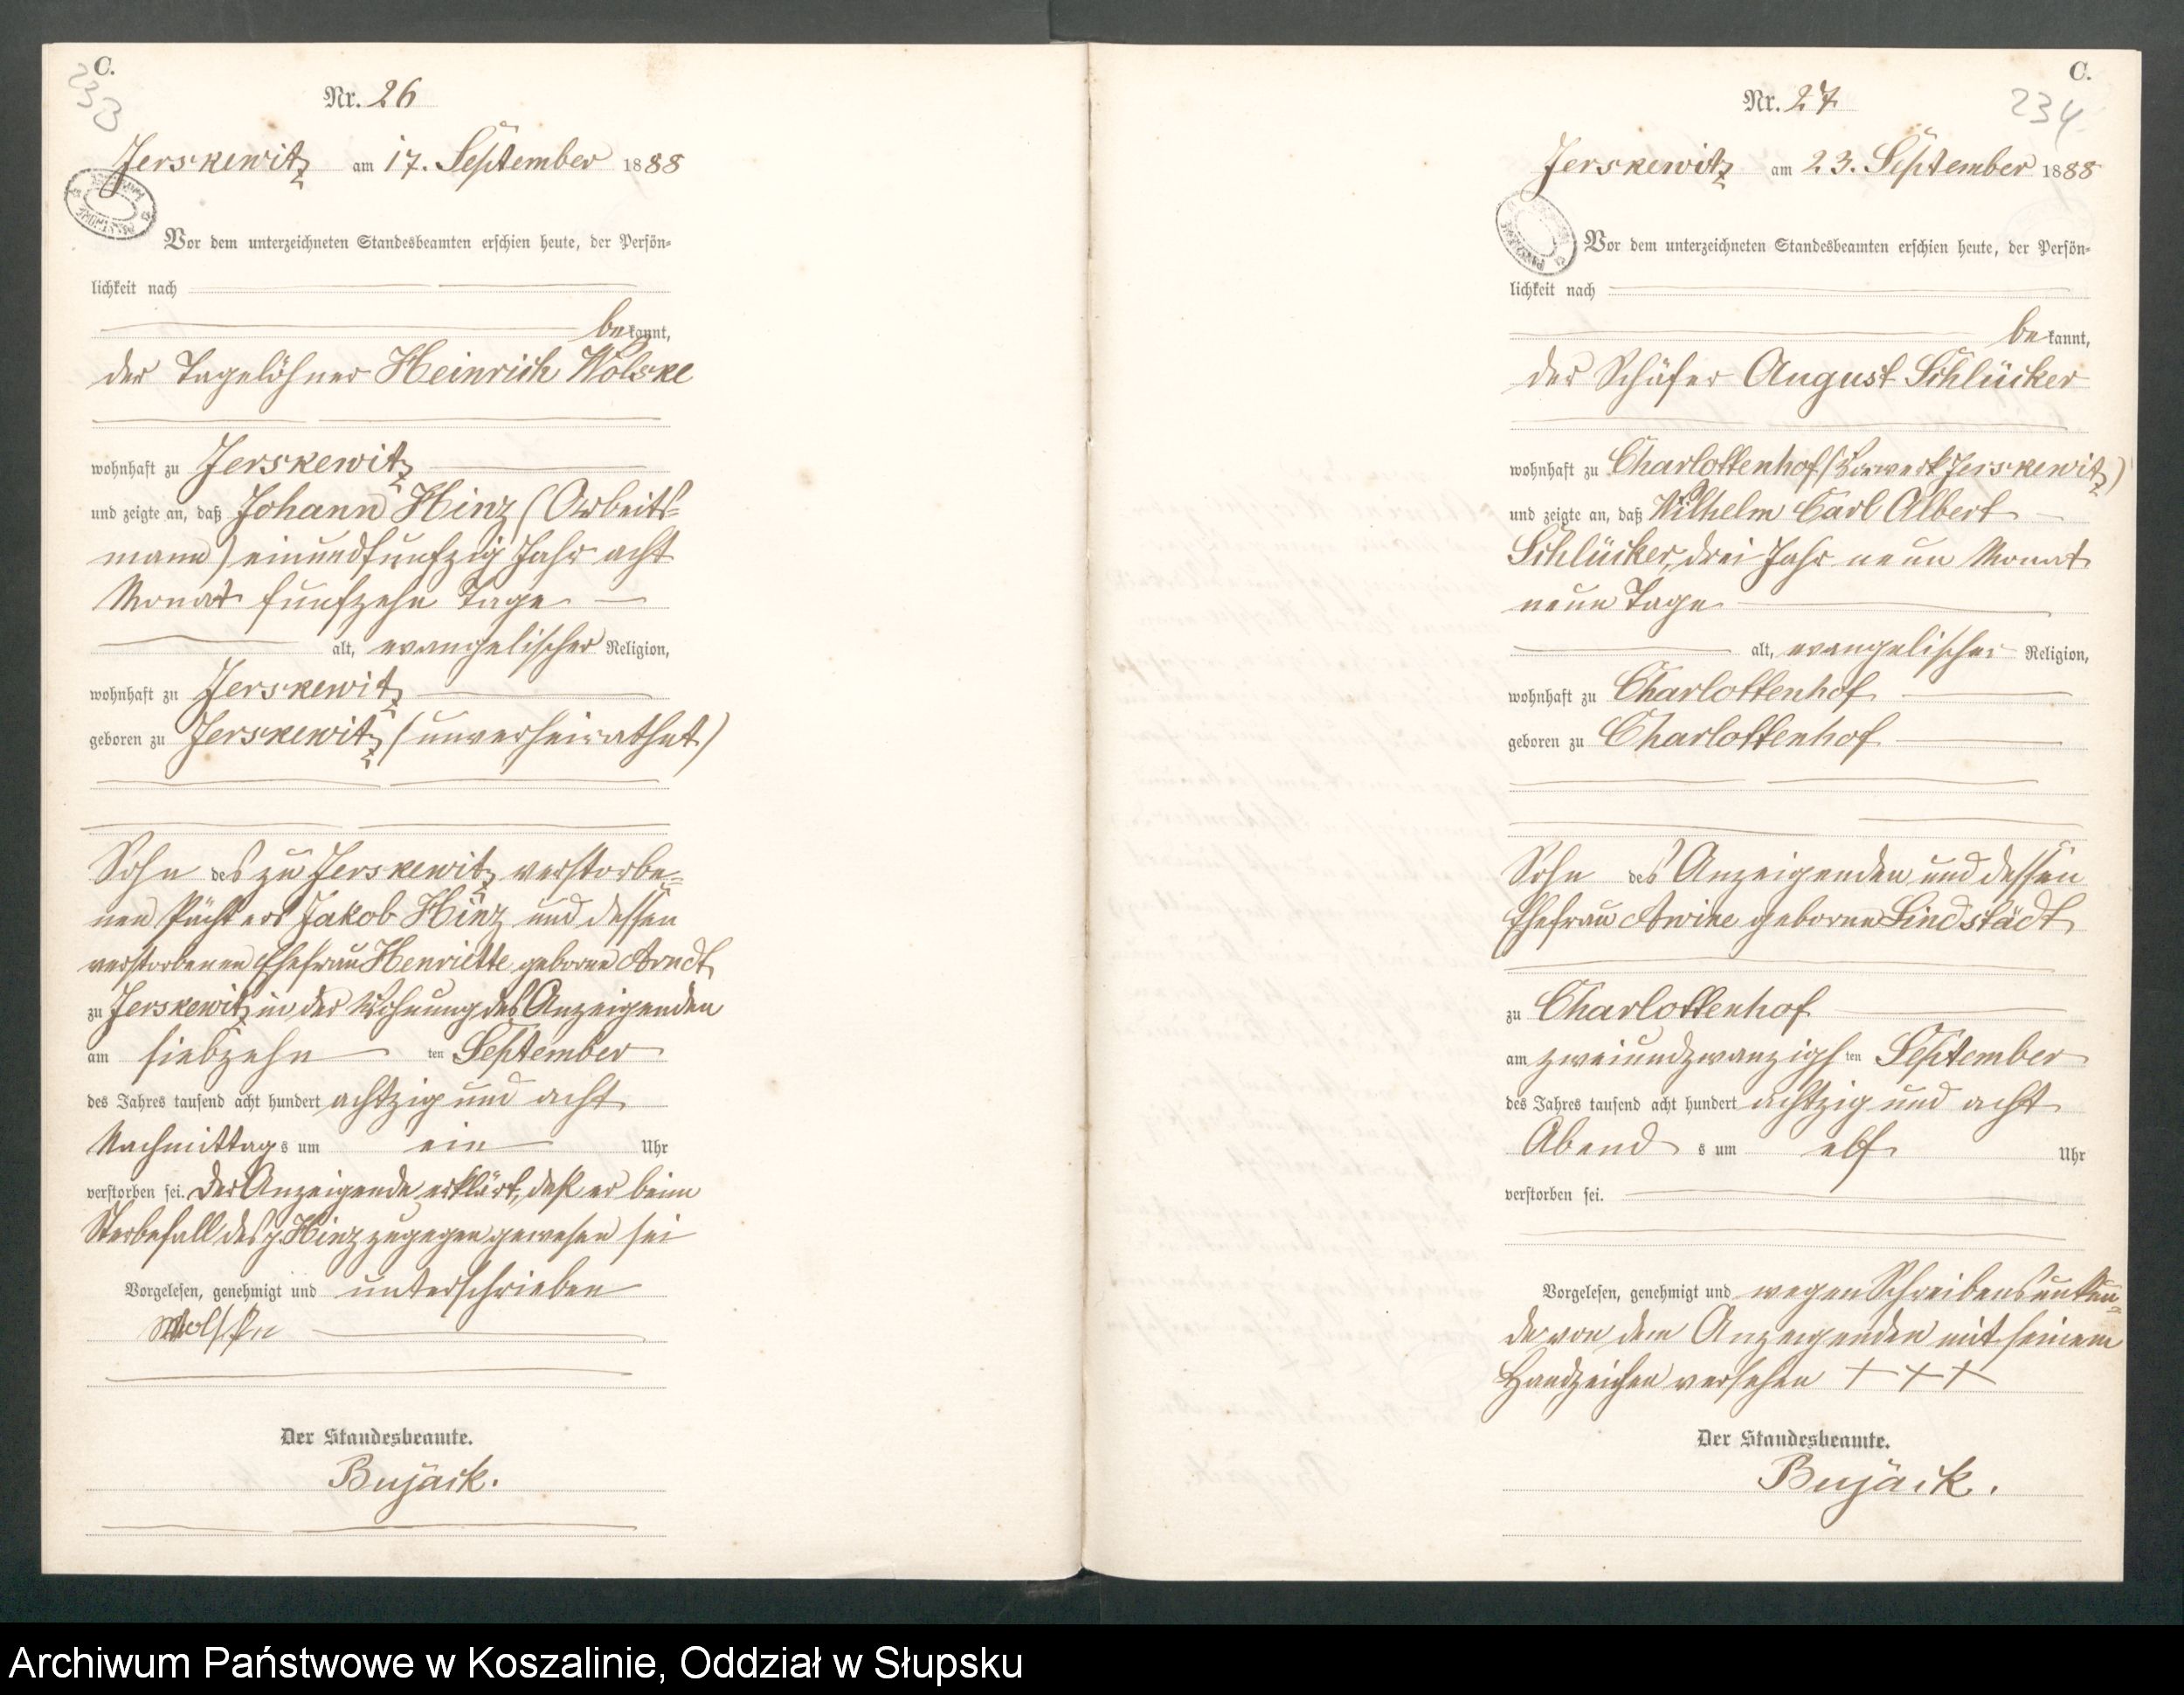 C.
233
Nr. 26
Jerskewitz am 17. September 1888
Vor dem unterzeichneten Standesbeamten erschien heute, der Persön-
lichkeit nach
bekannt,
der Tagelöhner Heinrich Wolske
wohnhaft zu Jerskewitz
und zeigte an, daß Johann Hinz (Arbeits-
mann) einundfunfzig Jahr acht
Monat funfzehn Tage
alt, evangelischer Religion,
wohnhaft zu Jerskewitz
geboren zu Jerskewitz (unverheirathet)
Sohn des zu Jerskewitz verstorbe-
nen Pächters Jakob Hinz und dessen
verstorbenen Ehefrau Henriette geborne Arndt
zu Jerskewitz in der Wohnung des Anzeigenden
am siebzehn ten September
des Jahres tausend acht hundert achtzig und acht
Nachmittags um ein Uhr
verstorben sei. Der Anzeigende erklärt, daß er beim
Sterbefall des p. Hinz zugegen gewesen sei
Vorgelesen, genehmigt und unterschrieben
Wolske
Der Standesbeamte.
Bujack.
C.
234
Nr. 27
Jerskewitz am 23. September 1888
Vor dem unterzeichneten Standesbeamten erschien heute, der Persön-
lichkeit nach
bekannt,
der Schäfer August Schlücker
wohnhaft zu Charlottenhof (Vorwerk Jerskewitz)
und zeigte an, daß Wilhelm Carl Albert
Schlücker, drei Jahr neun Monat
neun Tage
alt, evangelischer Religion,
wohnhaft zu Charlottenhof
geboren zu Charlottenhof
Sohn des Anzeigenden und dessen
Ehefrau Awine geborne Lindstädt
zu Charlottenhof
am zweiundzwanzigsten September
des Jahres tausend acht hundert achtzig und acht
Abends um elf Uhr
verstorben sei.
Vorgelesen, genehmigt und wegen Schreibensunkun-
de von dem Anzeigenden mit seinem
Handzeichen versehen + + +
Der Standesbeamte.
Bujack.
Archiwum Państwowe w Koszalinie, Oddział w Słupsku